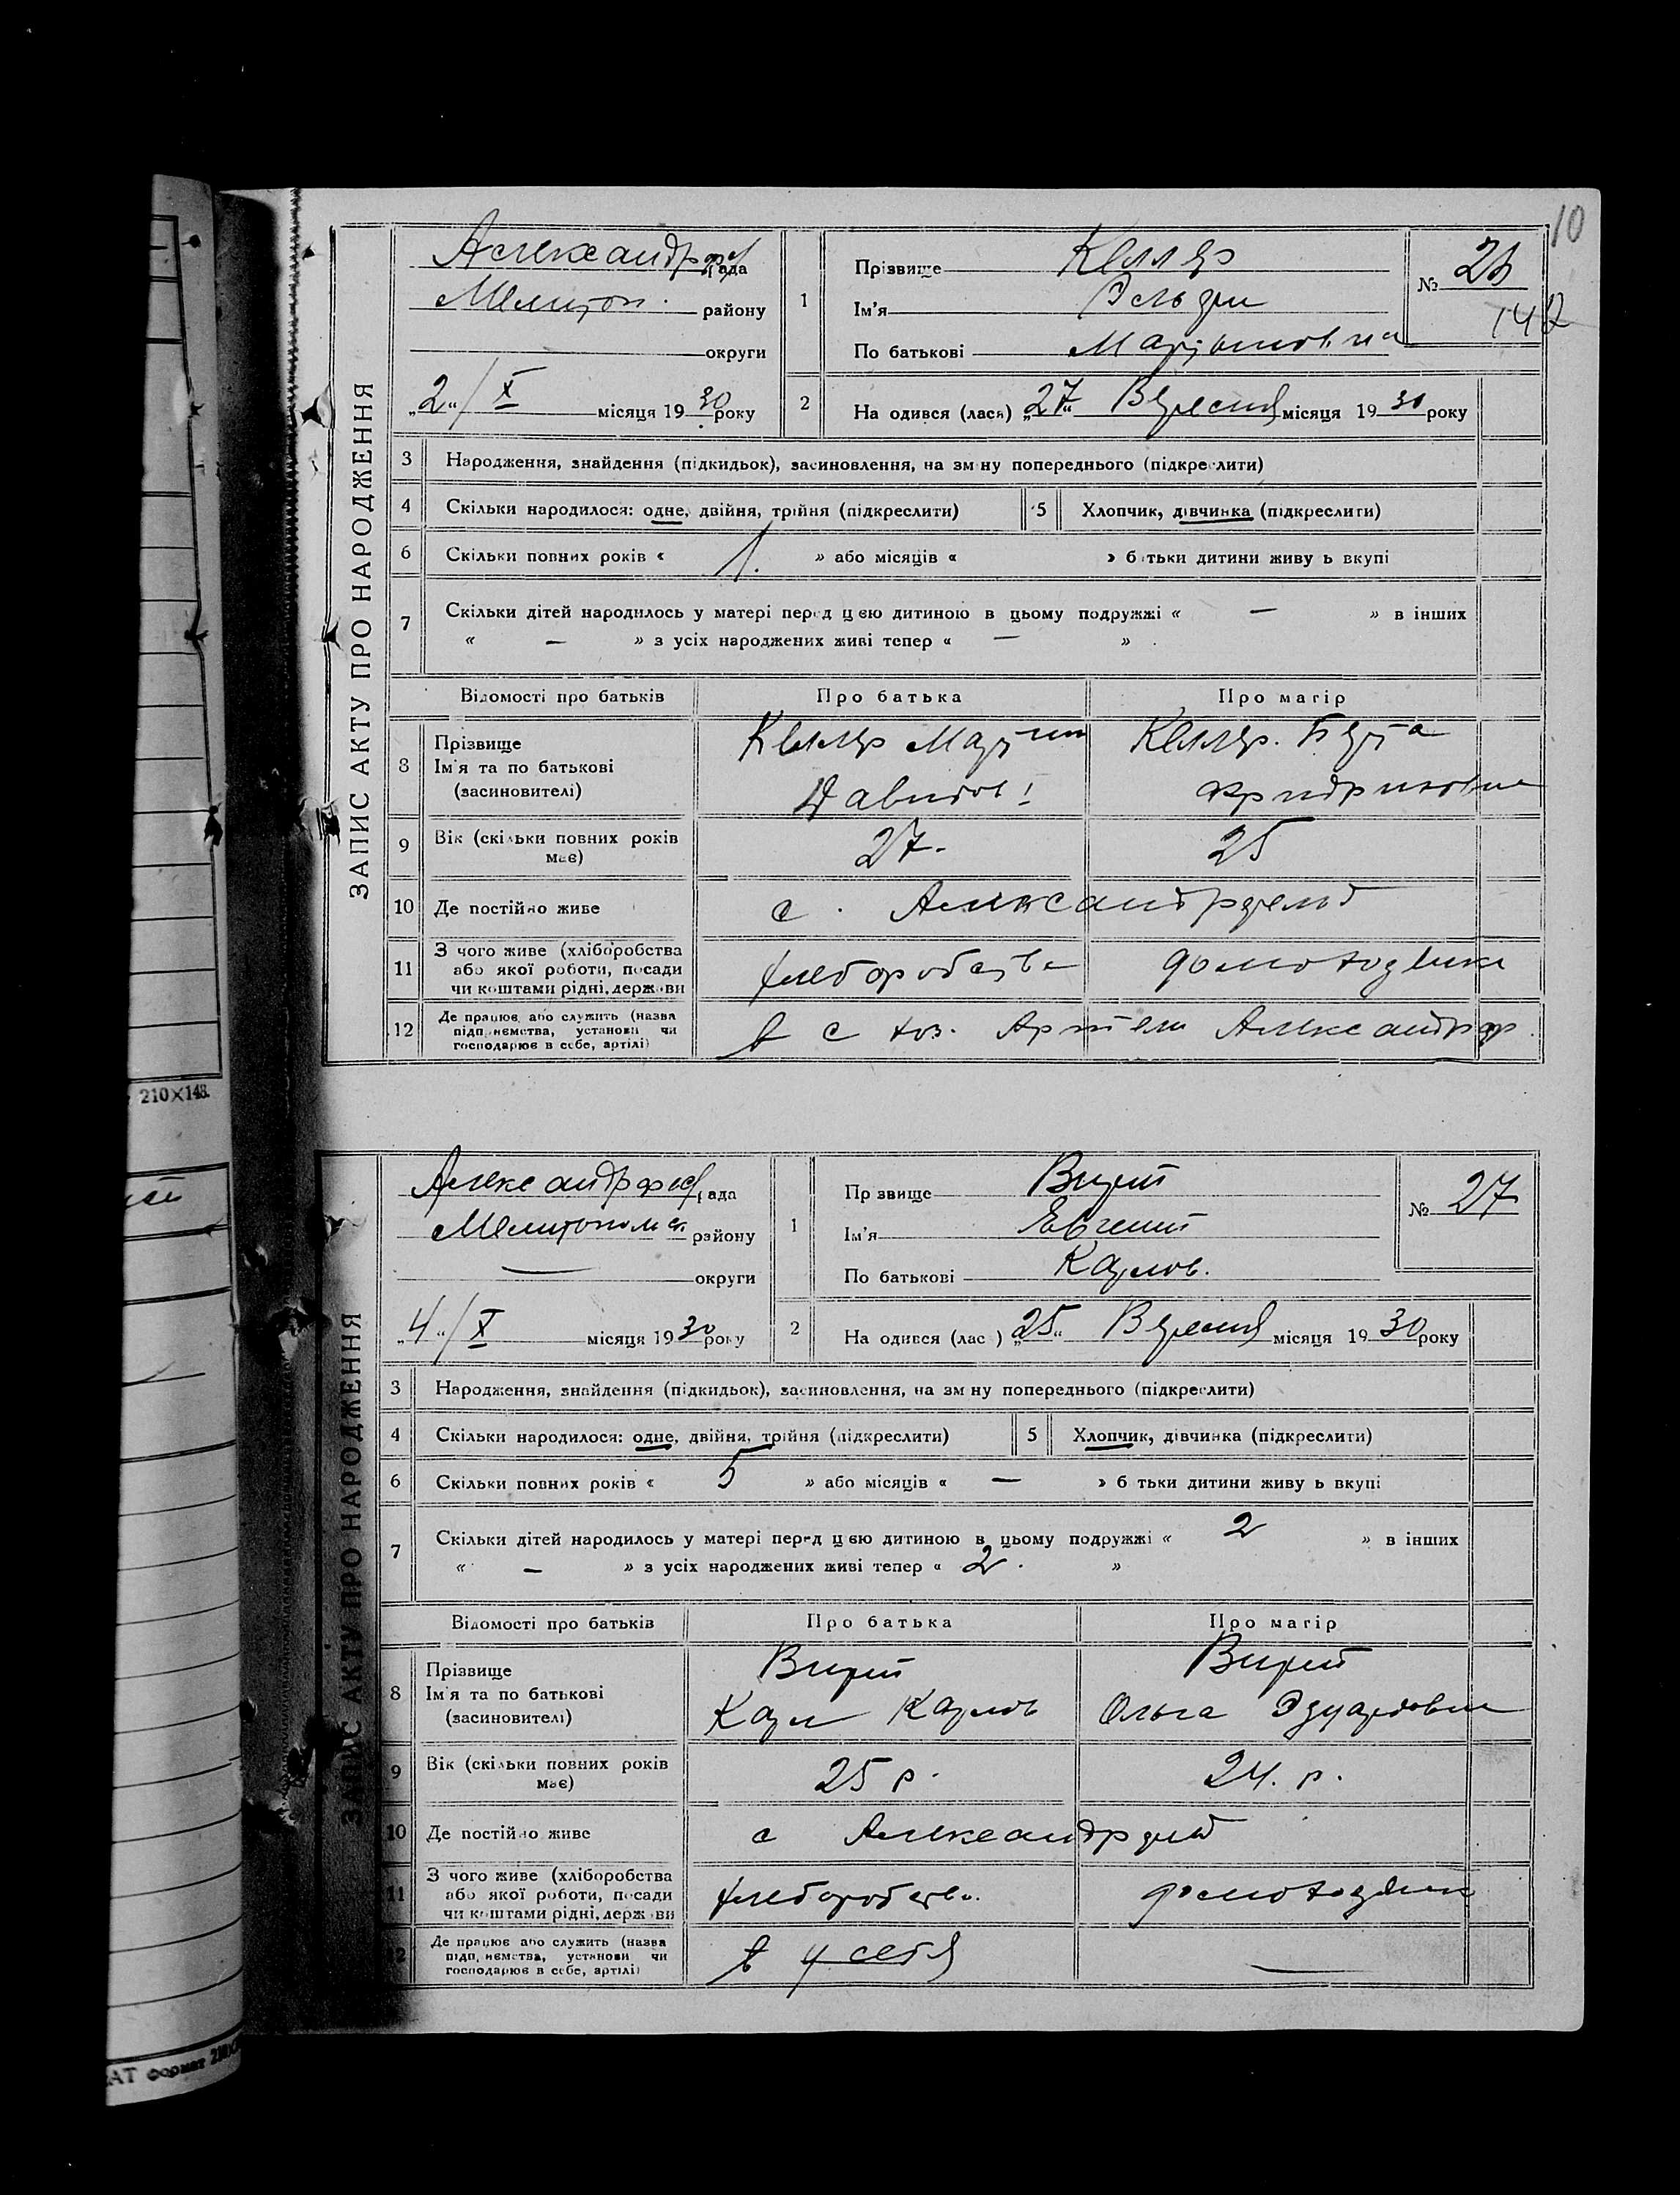 10
ЗАПИС АКТУ ПРО НАРОДЖЕННЯ
Александрф рада
Мелитоп. району
округи
„2“/X місяця 1930 року
1
Прізвище Келлер
Ім'я Эльзи
По батькові Мартиновна
№ 26
142
2 На одився (лася) „27“ Вересня місяця 1930 року
3 Народження, знайдення (підкидьок), засиновлення, на зм ну попереднього (підкреслити)
4 Скільки народилося: одне, двійня, трійня (підкреслити) 5 Хлопчик, дівчинка (підкреслити)
6 Скільки повних років « 1. » або місяців « » б тьки дитини живу ь вкупі
7 Скільки дітей народилось у матері перед цією дитиною в цьому подружжі « — » в інших
« — » з усіх народжених живі тепер « — »
Відомості про батьків Про батька Про матір
8 Прізвище
Ім'я та по батькові
(засиновителі)
Келлер Мартин
Давидов
Келлер. Берта
Фридриховна
9 Вік (скільки повних років має) 27. 25
10 Де постійно живе с. Александрфельд
11 З чого живе (хліборобства
або якої роботи, посади
чи коштами рідні, держави
хлеборобство домохозяйка
12 Де працює або служить (назва
підприємства, установи чи
господарює в себе, артілі)
в с хоз. Артели Александрф.
210×148.
ЗАПИС АКТУ ПРО НАРОДЖЕННЯ
Александрфел рада
Мелитопольск. району
— округи
„4“/X місяця 1930 року
1
Пр звище Вирт
Ім'я Евгений
По батькові Карлов.
№ 27
2 На одився (лас ) „25“ Вересня місяця 1930 року
3 Народження, знайдення (підкидьок), засиновлення, на зм ну попереднього (підкреслити)
4 Скільки народилося: одне, двійня, трійня (підкреслити) 5 Хлопчик, дівчинка (підкреслити)
6 Скільки повних років « 5 » або місяців « — » б тьки дитини живу ь вкупі
7 Скільки дітей народилось у матері перед цією дитиною в цьому подружжі « 2 » в інших
« — » з усіх народжених живі тепер « 2. »
Відомості про батьків Про батька Про матір
8 Прізвище
Ім'я та по батькові
(засиновителі)
Вирт
Карл Карлов
Вирт
Ольга Эдуардовна
9 Вік (скільки повних років має) 25 р. 24. р.
10 Де постійно живе с Александрфельд
11 З чого живе (хліборобства
або якої роботи, посади
чи коштами рідні, держ ви
хлеборобство. домохозяйка
12 Де працює або служить (назва
підп иємства, установи чи
господарює в себе, артілі)
в у себя —
АТ формат 210×